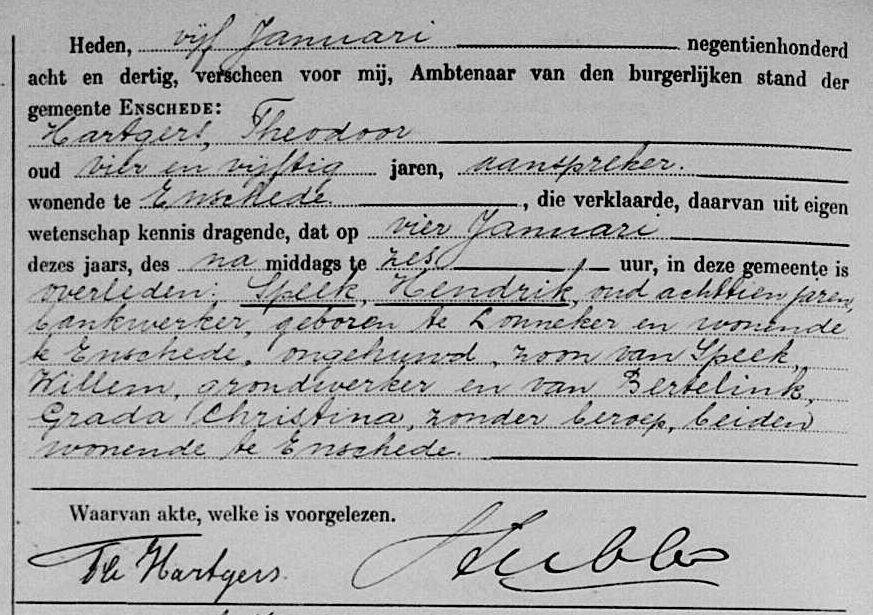 Heden, vijf Januari negentienhonderd
acht en dertig, verscheen voor mij, Ambtenaar van den burgerlijken stand der
gemeente ENSCHEDE:
Hartgers, Theodoor
oud vier en vijftig jaren, aanspreker.
wonende te Enschede, die verklaarde, daarvan uit eigen
wetenschap kennis dragende, dat op vier Januari
dezes jaars, des na middags te zes uur, in deze gemeente is
overleden: Speek, Hendrik, oud achttien jaren,
bankwerker, geboren te Lonneker en wonende
te Enschede, ongehuwd, zoon van Speek,
Willem, grondwerker en van Bertelink,
Grada Christina, zonder beroep, beiden
wonende te Enschede.
Waarvan akte, welke is voorgelezen.
Th Hartgers.